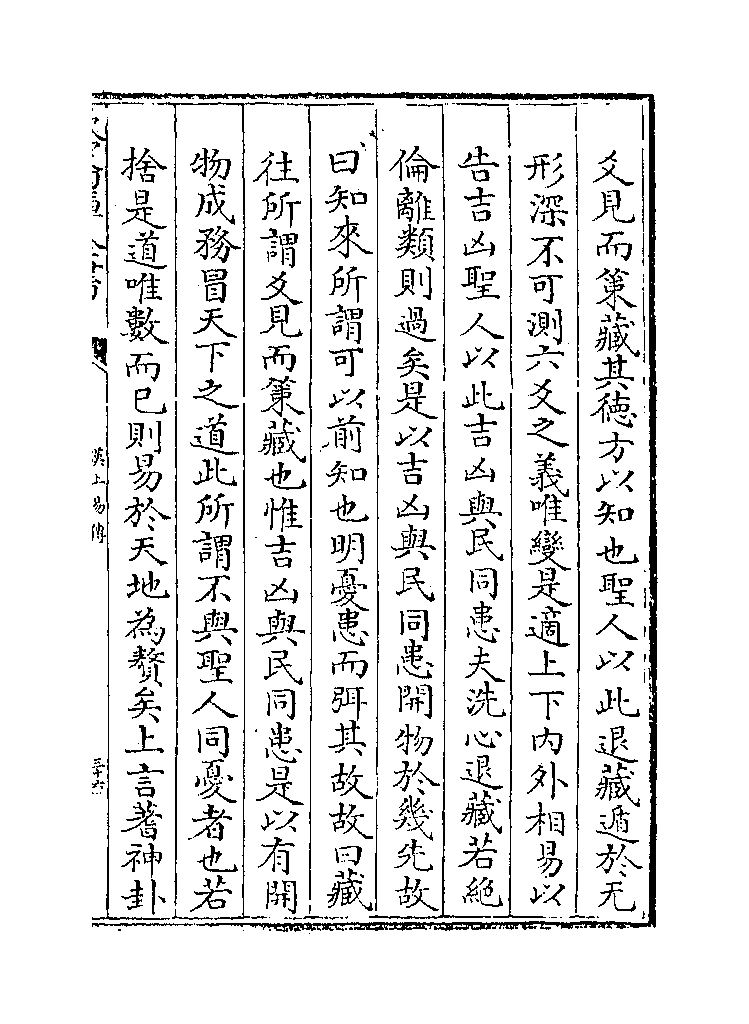 爻見而䇿藏其徳方以知也聖人以此退藏遁於无
形深不可測六爻之義唯變是適上下内外相易以
告吉凶聖人以此吉凶與民同患夫洗心退藏若絶
倫離類則過矣是以吉凶與民同患開物於幾先故
曰知來所謂可以前知也明憂患而弭其故故曰藏
往所謂爻見而䇿藏也惟吉凶與民同患是以有開
物成務冒天下之道此所謂不與聖人同憂者也若
捨是道唯數而已則易於天地為贅矣上言蓍神卦
漢上易傳
三十六